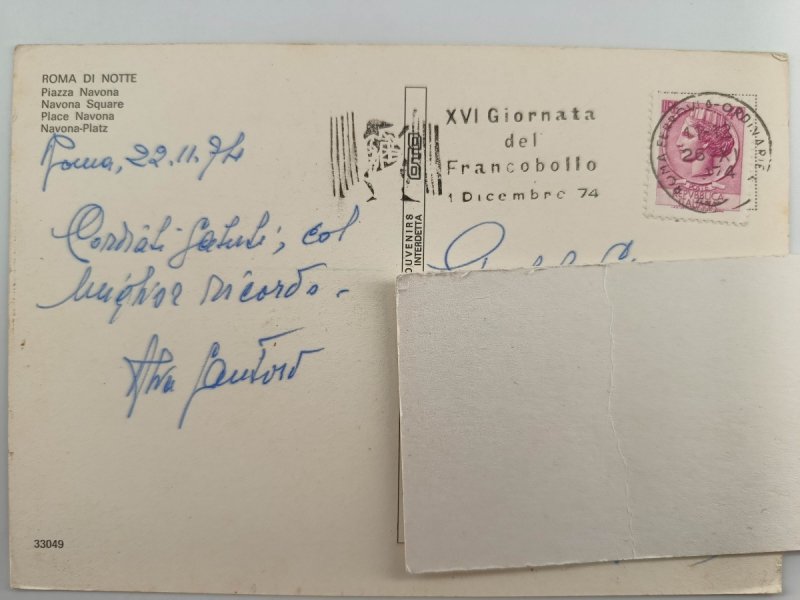 ROMA DI NOTTE
Piazza Navona
Navona Square
Place Navona
Navona-Platz
Roma, 22.11.74
Cordiali saluti, col
miglior ricordo.
Santoro
33049
OUVENIRS
INTERDETTA
XVI Giornata
del
Francobollo
1 Dicembre 74
ROMA FERROVIA-ORDINARIE
74